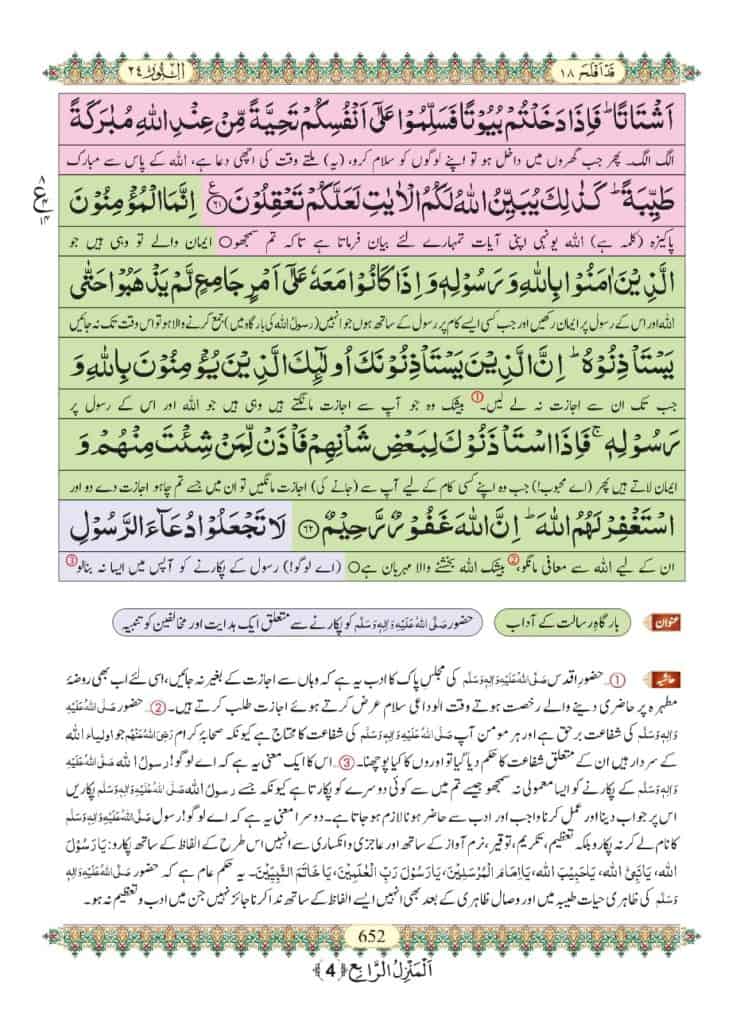 قَدْ اَفْلَحَ ١٨
اَلنُّوْر ٢٤
اَشْتَاتًاؕ فَاِذَا دَخَلْتُمْ بُيُوْتًا فَسَلِّمُوْا عَلٰۤى اَنْفُسِكُمْ تَحِيَّةً مِّنْ عِنْدِ اللّٰهِ مُبٰرَكَةً
الگ الگ۔ پھر جب گھروں میں داخل ہو تو اپنے لوگوں کو سلام کرو، (یہ) ملتے وقت کی اچھی دعا ہے، اللہ کے پاس سے مبارک
طَيِّبَةًؕ كَذٰلِكَ يُبَيِّنُ اللّٰهُ لَكُمُ الْاٰيٰتِ لَعَلَّكُمْ تَعْقِلُوْنَ۠ ﴿٦١﴾ اِنَّمَا الْمُؤْمِنُوْنَ
پاکیزہ (کلمہ ہے) اللہ یونہی اپنی آیات تمہارے لئے بیان فرماتا ہے تاکہ تم سمجھو○ ایمان والے تو وہی ہیں جو
الَّذِيْنَ اٰمَنُوْا بِاللّٰهِ وَ رَسُوْلِهٖ وَ اِذَا كَانُوْا مَعَهٗ عَلٰۤى اَمْرٍ جَامِعٍ لَّمْ يَذْهَبُوْا حَتّٰى
اللہ اور اس کے رسول پر ایمان رکھیں اور جب کسی ایسے کام پر رسول کے ساتھ ہوں جو انہیں (رسولُ اللہ کی بارگاہ میں) جمع کرنے والا ہو تو اس وقت تک نہ جائیں
يَسْتَاْذِنُوْهُؕ اِنَّ الَّذِيْنَ يَسْتَاْذِنُوْنَكَ اُولٰٓىٕكَ الَّذِيْنَ يُؤْمِنُوْنَ بِاللّٰهِ وَ
جب تک ان سے اجازت نہ لے لیں۔① بیشک وہ جو آپ سے اجازت مانگتے ہیں وہی ہیں جو اللہ اور اس کے رسول پر
رَسُوْلِهٖۚ فَاِذَا اسْتَاْذَنُوْكَ لِبَعْضِ شَاْنِهِمْ فَاْذَنْ لِّمَنْ شِئْتَ مِنْهُمْ وَ
ایمان لاتے ہیں پھر (اے محبوب!) جب وہ اپنے کسی کام کے لیے آپ سے (جانے کی) اجازت مانگیں تو ان میں جسے تم چاہو اجازت دے دو اور
اسْتَغْفِرْ لَهُمُ اللّٰهَؕ اِنَّ اللّٰهَ غَفُوْرٌ رَّحِيْمٌ ﴿٦٢﴾ لَا تَجْعَلُوْا دُعَآءَ الرَّسُوْلِ
ان کے لیے اللہ سے معافی مانگو،② بیشک اللہ بخشنے والا مہربان ہے○ (اے لوگو!) رسول کے پکارنے کو آپس میں ایسا نہ بنالو③
ع ٨ ٤ ١٤
عنوان بارگاہِ رسالت کے آداب حضور صَلَّی اللہُ عَلَیْہِ وَاٰلِہٖ وَسَلَّم کو پکارنے سے متعلق ایک ہدایت اور مخالفین کو تنبیہ
حاشیہ ①... حضورِ اقدس صَلَّی اللہُ عَلَیْہِ وَاٰلِہٖ وَسَلَّم کی مجلسِ پاک کا ادب یہ ہے کہ وہاں سے اجازت کے بغیر نہ جائیں، اسی لئے اب بھی روضۂ
مطہرہ پر حاضری دینے والے رخصت ہوتے وقت الوداعی سلام عرض کرتے ہوئے اجازت طلب کرتے ہیں۔ ②... حضور صَلَّی اللہُ عَلَیْہِ
وَاٰلِہٖ وَسَلَّم کی شفاعت برحق ہے اور ہر مومن آپ صَلَّی اللہُ عَلَیْہِ وَاٰلِہٖ وَسَلَّم کی شفاعت کا محتاج ہے کیونکہ صحابۂ کرام رَضِیَ اللہُ عَنْہُمْ جو اولیاء اللہ
کے سردار ہیں ان کے متعلق شفاعت کا حکم دیا گیا تو اوروں کا کیا پوچھنا۔ ③... اس کا ایک معنی یہ ہے کہ اے لوگو! رسولُ اللہ صَلَّی اللہُ عَلَیْہِ
وَاٰلِہٖ وَسَلَّم کے پکارنے کو ایسا معمولی نہ سمجھو جیسے تم میں سے کوئی دوسرے کو پکارتا ہے کیونکہ جسے رسولُ اللہ صَلَّی اللہُ عَلَیْہِ وَاٰلِہٖ وَسَلَّم پکاریں
اس پر جواب دینا اور عمل کرنا واجب اور ادب سے حاضر ہونا لازم ہو جاتا ہے۔ دوسرا معنی یہ ہے کہ اے لوگو! رسول صَلَّی اللہُ عَلَیْہِ وَاٰلِہٖ وَسَلَّم
کا نام لے کر نہ پکارو بلکہ تعظیم، تکریم، توقیر، نرم آواز کے ساتھ اور عاجزی و انکساری سے انہیں اس طرح کے الفاظ کے ساتھ پکارو: یَارَسُوْلَ
اللہ، یَانَبِیَّ اللہ، یَاحَبِیْبَ اللہ، یَااِمَامَ الْمُرْسَلِیْنَ، یَارَسُوْلَ رَبِّ الْعٰلَمِیْنَ، یَاخَاتَمَ النَّبِیِّیْنَ۔ یہ حکم عام ہے کہ حضور صَلَّی اللہُ عَلَیْہِ وَاٰلِہٖ
وَسَلَّم کی ظاہری حیاتِ طیبہ میں اور وصالِ ظاہری کے بعد بھی انہیں ایسے الفاظ کے ساتھ ندا کرنا جائز نہیں جن میں ادب و تعظیم نہ ہو۔
652
اَلْمَنْزِلُ الرَّابِع ﴿4﴾